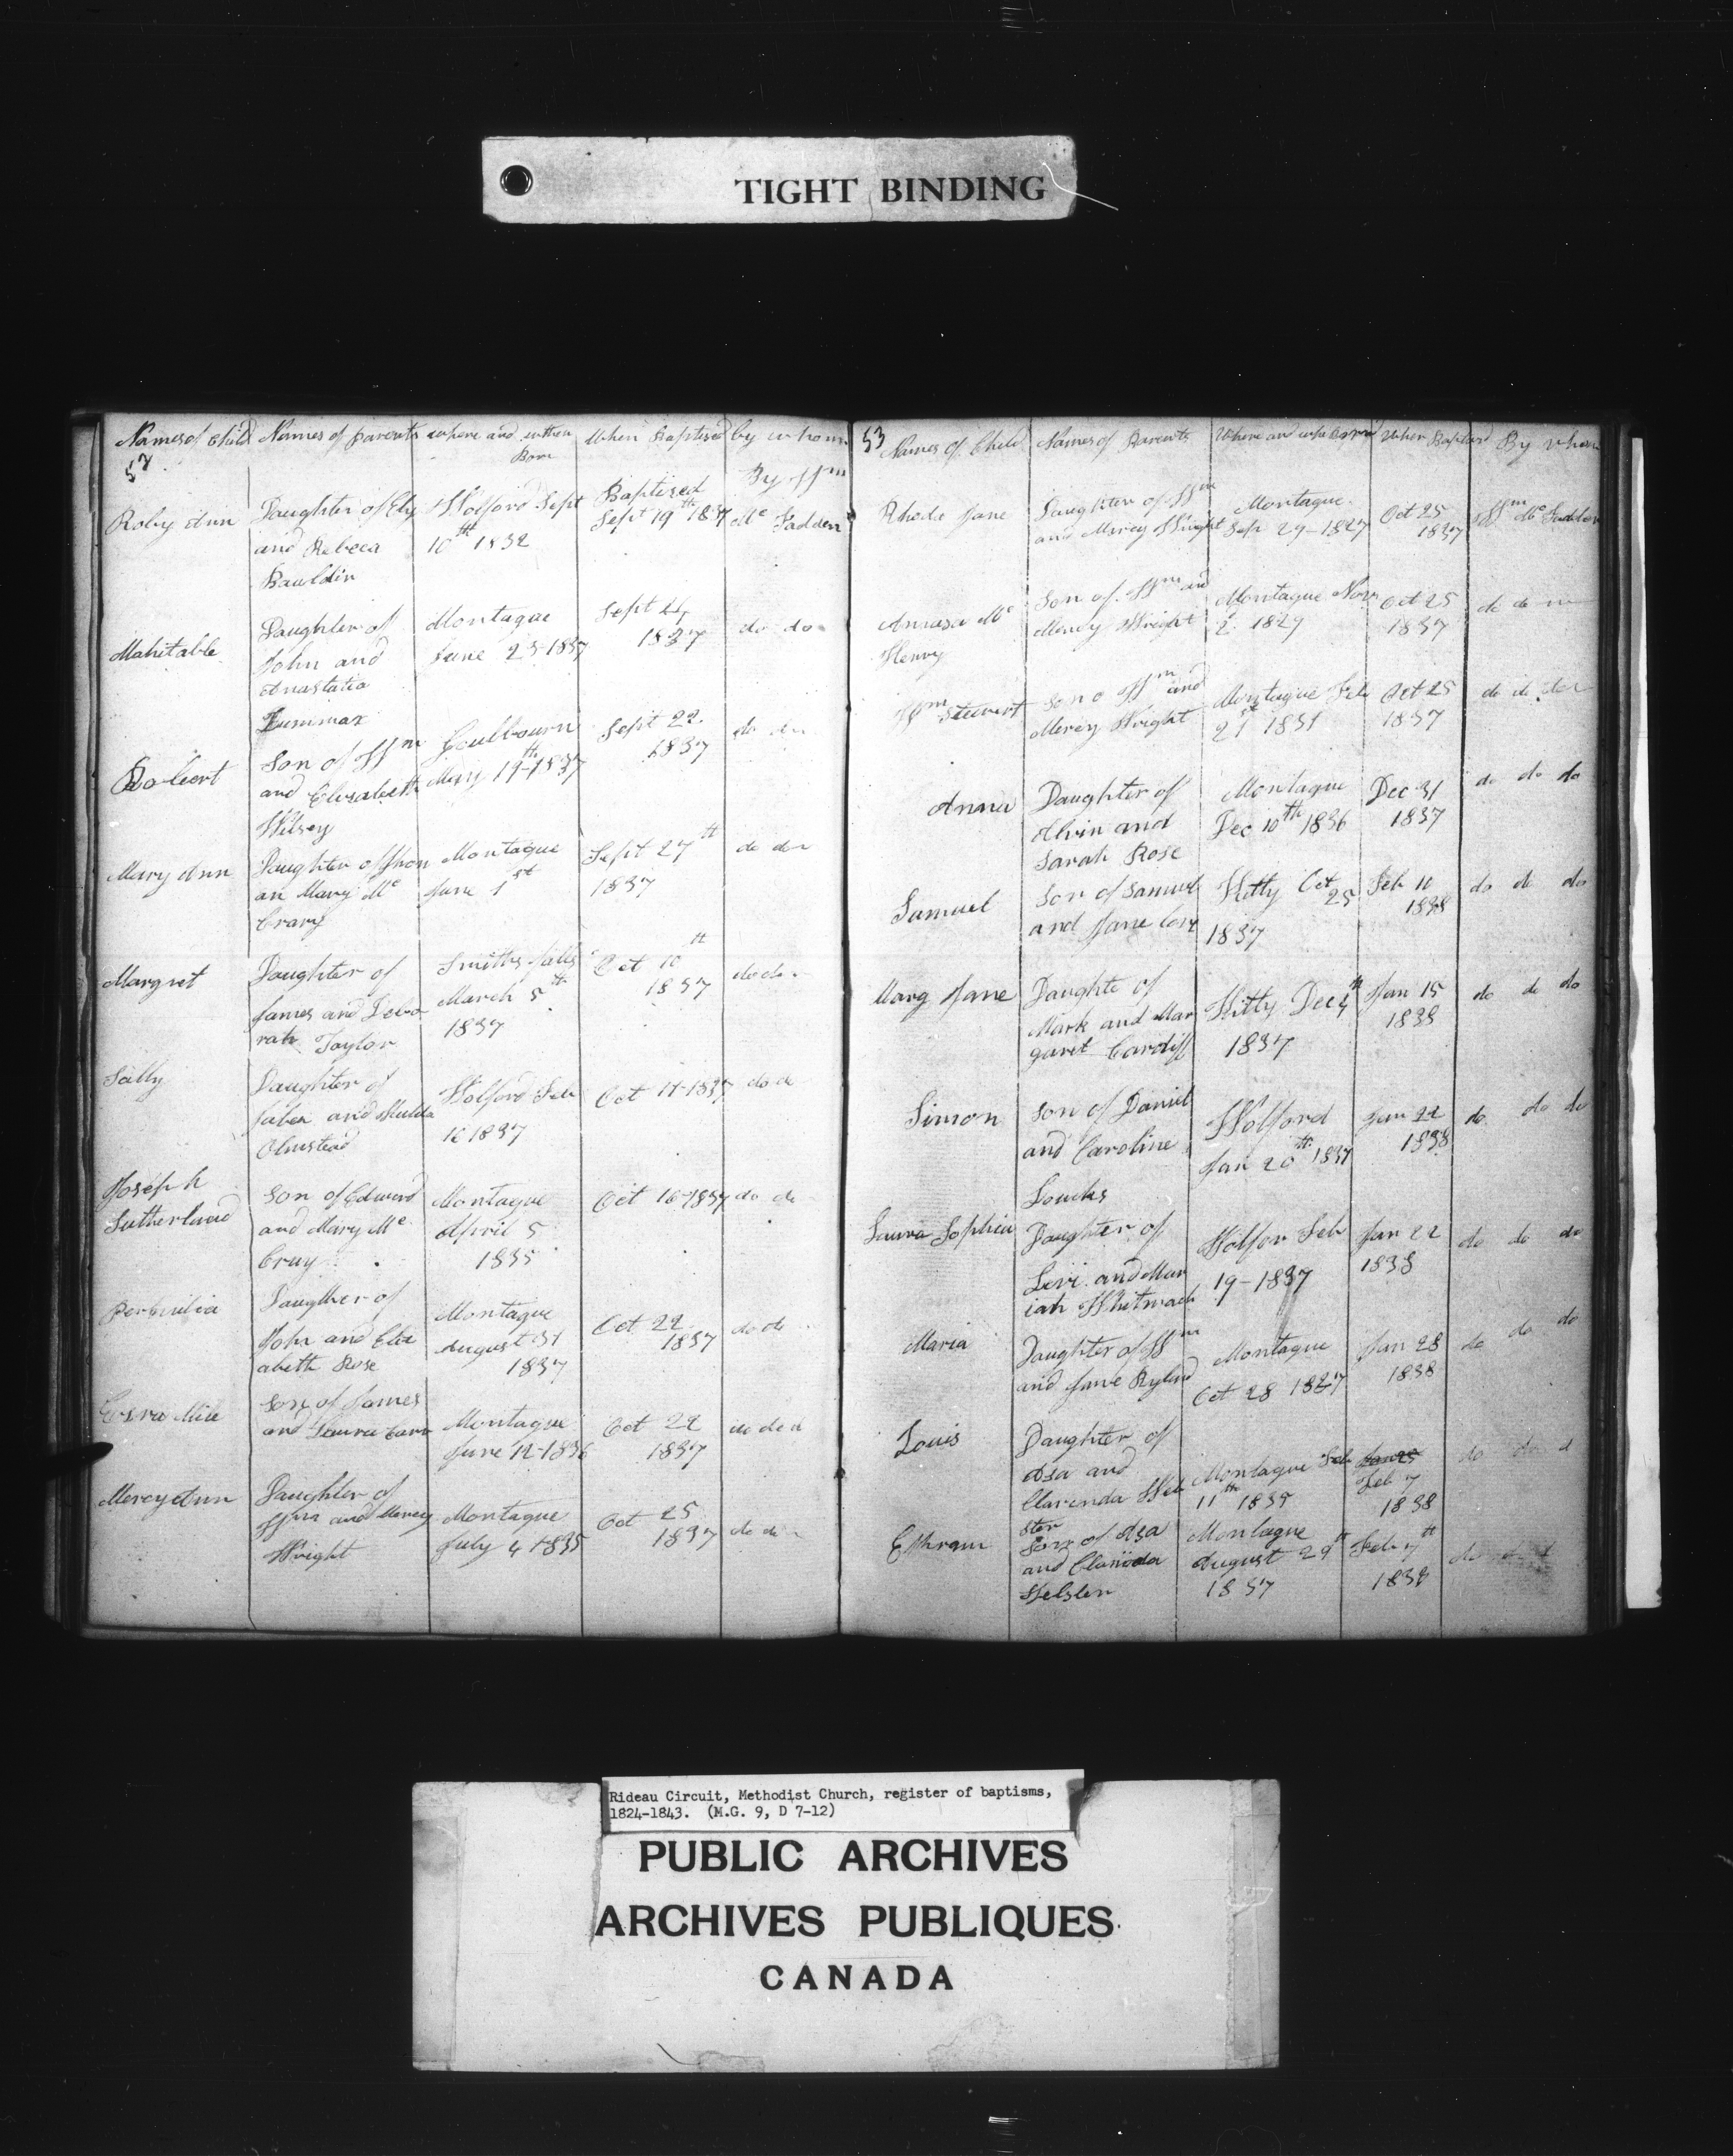 TIGHT BINDING
Names of Child Names of parents where and when Born When Baptised by whom
Roby Ann
Daughter of Ely
and Rebeca
Bauldin
Wolford Sept
10th 1832
Baptised
Sept 19th 1837
By Wm
Mc Fadden
Mahitable
Daughter of
John and
Anastatia
Montague
June 23-1837
Sept 21
1837
do do
Robert
Son of Wm
and Elisabeth
Wilsey
Goulbourn
May 19th-1837
Sept 22
1837
do
Mary Ann
Daughter of Jhon
an Mary Mc
Crary
Montague
June 1st
Sept 27th
1837
do do
Margret
Daughter of
James and Debo
rah Taylor
Smiths falls
March 5th
1837
Oct 10th
1837
do do
Sally
Daughter of
and Hulda
Olmstead
Wolford Feb
16 1837
Oct 11-1837
do do
Joseph
Sutherland
Son of Edward
and Mary Mc
Cray
Montague
April 5
1835
Oct 16-1837
do do
Daughter of
John and Eliz
abeth Rose
Montague
August 31
1837
Oct 22
1837
do do
Son of James
and Laura Carr
Montague
June 12-1836
Oct 22
1837
do do d
Mercy Ann
Daughter of
Wm and Mercy
Wright
Montague
July 4 1835
Oct 25
1837
do do
53
Names of Child Names of Parents Where and when Born When Baptised By whom
Rhoda Jane
Daughter of Wm
and Mercy Wright
Montague
Sep 29-1827
Oct 25
1837
Wm Mc Fadden
Amasa Mc
Henry
Son of Wm and
Mercy Wright
Montague Nov
2 1829
Oct 25
1837
do do
Wm Stewert
Son o Wm and
Mercy Wright
Montague Feb
21st 1831
Oct 25
1837
do do do
Anna
Daughter of
Alvin and
Sarah Rose
Montague
Dec 10th 1836
Dec 31
1837
do do do
Samuel
Son of Samuel
and Jane
Kitty Oct
25
1837
Feb 10
1838
do do do
Marg Jane
Daughte of
Mark and Mar
garet Cardiff
Kitty Dec 4th
1837
Jan 15
1838
do do do
Simon
Son of Daniel
and Caroline
Loucks
Wolford
Jan 20th 1837
Jan 22
1838
do do do
Laura Sophia
Daughter of
Levi and Mar
iah Whitmarsh
Wolfor Feb
19-1837
Jan 22
1838
do do do
Maria
Daughter of Wm
and Jane Ryland
Montague
Oct 28 1827
Jan 28
1838
do do do
Louis
Daughter of
Asa and
Clarenda Web
ster
Montague Feb
11th 1835
Feb 7
1838
do do d
Ephraim
Son of Asa
and Clarinda
Webster
Montague
August 29th
1837
Feb 7th
1838
do do d
Rideau Circuit, Methodist Church, register of baptisms,
1824-1843. (M.G. 9, D 7-12)
PUBLIC ARCHIVES
ARCHIVES PUBLIQUES
CANADA